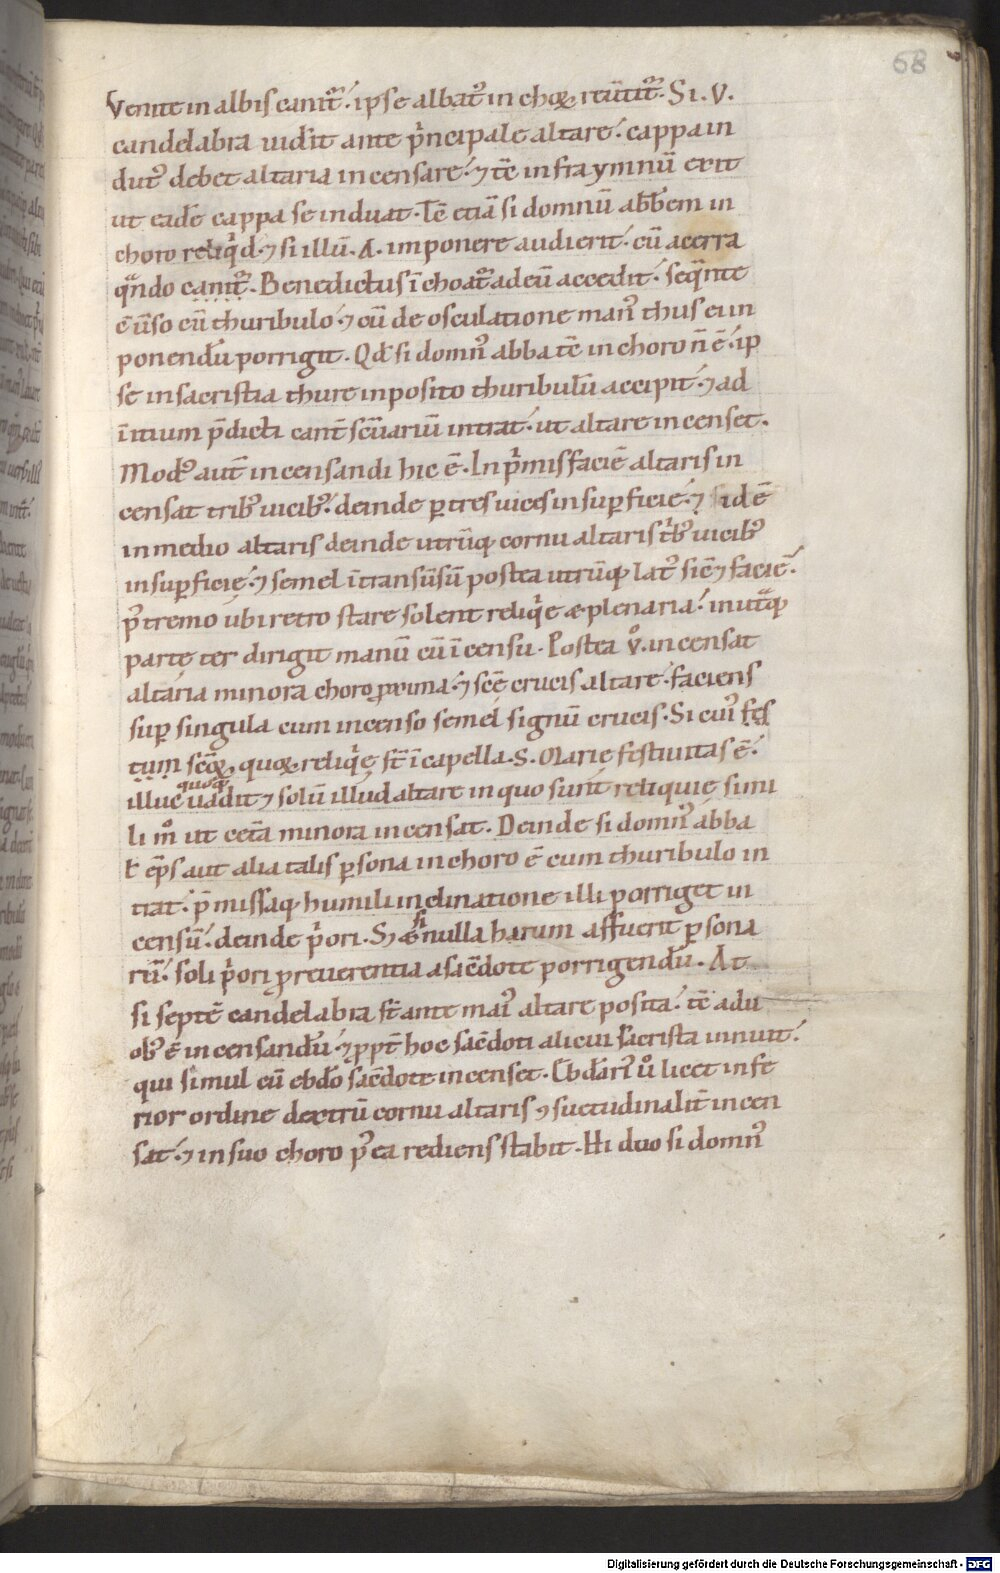 68
Venite in albis canit᷑. ipse albat᷒ in choꝝ reu̅tit᷑. Si .V.
candelabra uidit ante p͛ncipale altare. cappa in
dut᷒ debet altaria incensare. ⁊ te̅ infra ymnu̅ exit
ut ead̅e cappa se induat. Te̅ etia̅ si domnu̅ abb̅em in
choro reliq͛d. ⁊ si illu̅ .A. imponere audierit. cu̅ acerra
qͣndo canit᷑. Benedictus i̅choat᷑ ad eu̅ accedit. seqͣnte
c̅u̅so cu̅ thuribulo. ⁊ cu̅ deosculatione man᷒ thus ei in
ponend̅u porrigit. Qd̅ si domn᷒ abba te̅ in choro n̅ e̅. ip
se in sacristia thure inposito thuribulu̅ accipit. ⁊ ad
i̅nitium p̅dicti cant̅ sc̅uariu̅ intrat. ut altare incenset.
Mod᷒ aut̅ incensandi hic e̅. In p͛mis facie̅ altaris in
censat trib᷒ uicib᷒. deinde ꝑ tres uices in suꝑficie. ⁊ id e̅
in medio altaris deinde utru̅q; cornu altaris t͛b᷒ uicib᷒
in suꝑficie. ⁊ semel i̅ transu̅su̅ postea utru̅q; lat᷒ sic̅ ⁊ facie̅.
p᷒tremo ubi retro stare solent reliq͛e ę plenaria. in utͣq;
parte ter dirigit manu̅ cu̅ i̅censu. Postea v̊. incensat
altaria minora choro ꝓxima. ⁊ sc̅ę crucis altare. faciens
suꝑ singula cum incenso semel signu̅ crucis. Si cui᷒ fes
tum sc̅oꝝ, quoꝝ reliq͛ę st̅ i̅ capella .S. Marie festiuitas e̅.
quoq;
illuc uadit ⁊ solu̅ illud altare in quo sunt reliquię simi
li m̊ ut cet̅a minora incensat. Deinde si domn᷒ abba
ł ep̅s aut alia talis ꝑsona in choro e̅ cum thuribulo in
trat. p̅missaq; humili inclinatione illi porriget in
censu̅. deinde p͛ori. S; ⁊
si
nulla harum affuerit ꝑsona
ru̅. soli p͛ori ꝓ reuerentia a sac̅dote porrigend̅u. At
si septe̅ candelabra st̅ ante mai᷒ altare posita. te̅ a du
ob᷒ e̅ incensand̅u. ⁊ ꝓpt̅ hoc sac̅doti alicui sacrista innuit.
qui simul cu̅ ebd̅o sac̅dote incenset. Ebd̅ari᷒ v̊ licet infe
rior ordine dextru̅ cornu altaris ꝯsuetudinalit̅ incen
sat. ⁊ in suo choro p᷒ea rediens stabit. Hi duo si domn᷒
Digitalisierung gefördert durch die Deutsche Forschungsgemeinschaft - DFG